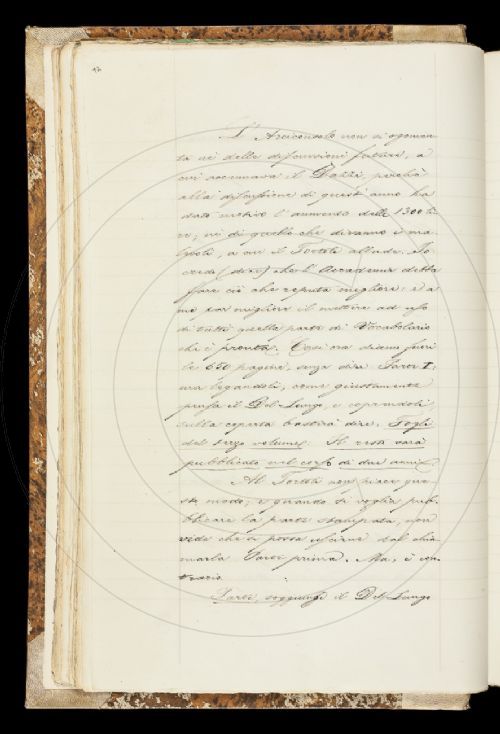 L'Arciconsolo non si sgomen-
ta nè delle discussioni future, a
cui accennava il Dazzi, perchè
alla discussione di quest'anno ha
dato motivo l'aumento delle 1300 li-
re; nè di quello che diranno i ma-
levoli, a cui il Tortoli allude. Io
credo (dice) che l'Accademia debba
fare ciò che reputa migliore: e a
me par migliore il mettere ad uso
di tutti quella parte di Vocabolario
che è pronta. Così ora diamo fuori
le 650 pagine, senza dire Parte I;
ma legandole, come giustamente
pensa il Del Lungo, e coprendole,
sulla coperta basterà dire, Fogli
del terzo volume. Il resto sarà
pubblicato nel corso di due anni.
Al Tortoli non piace que-
sto modo; e quando si voglia pub-
blicare la parte stampata, non
vede che si possa uscirne dal chia-
marla Parte prima. Ma, è con-
trario.
Parte, soggiunge il Del Lungo